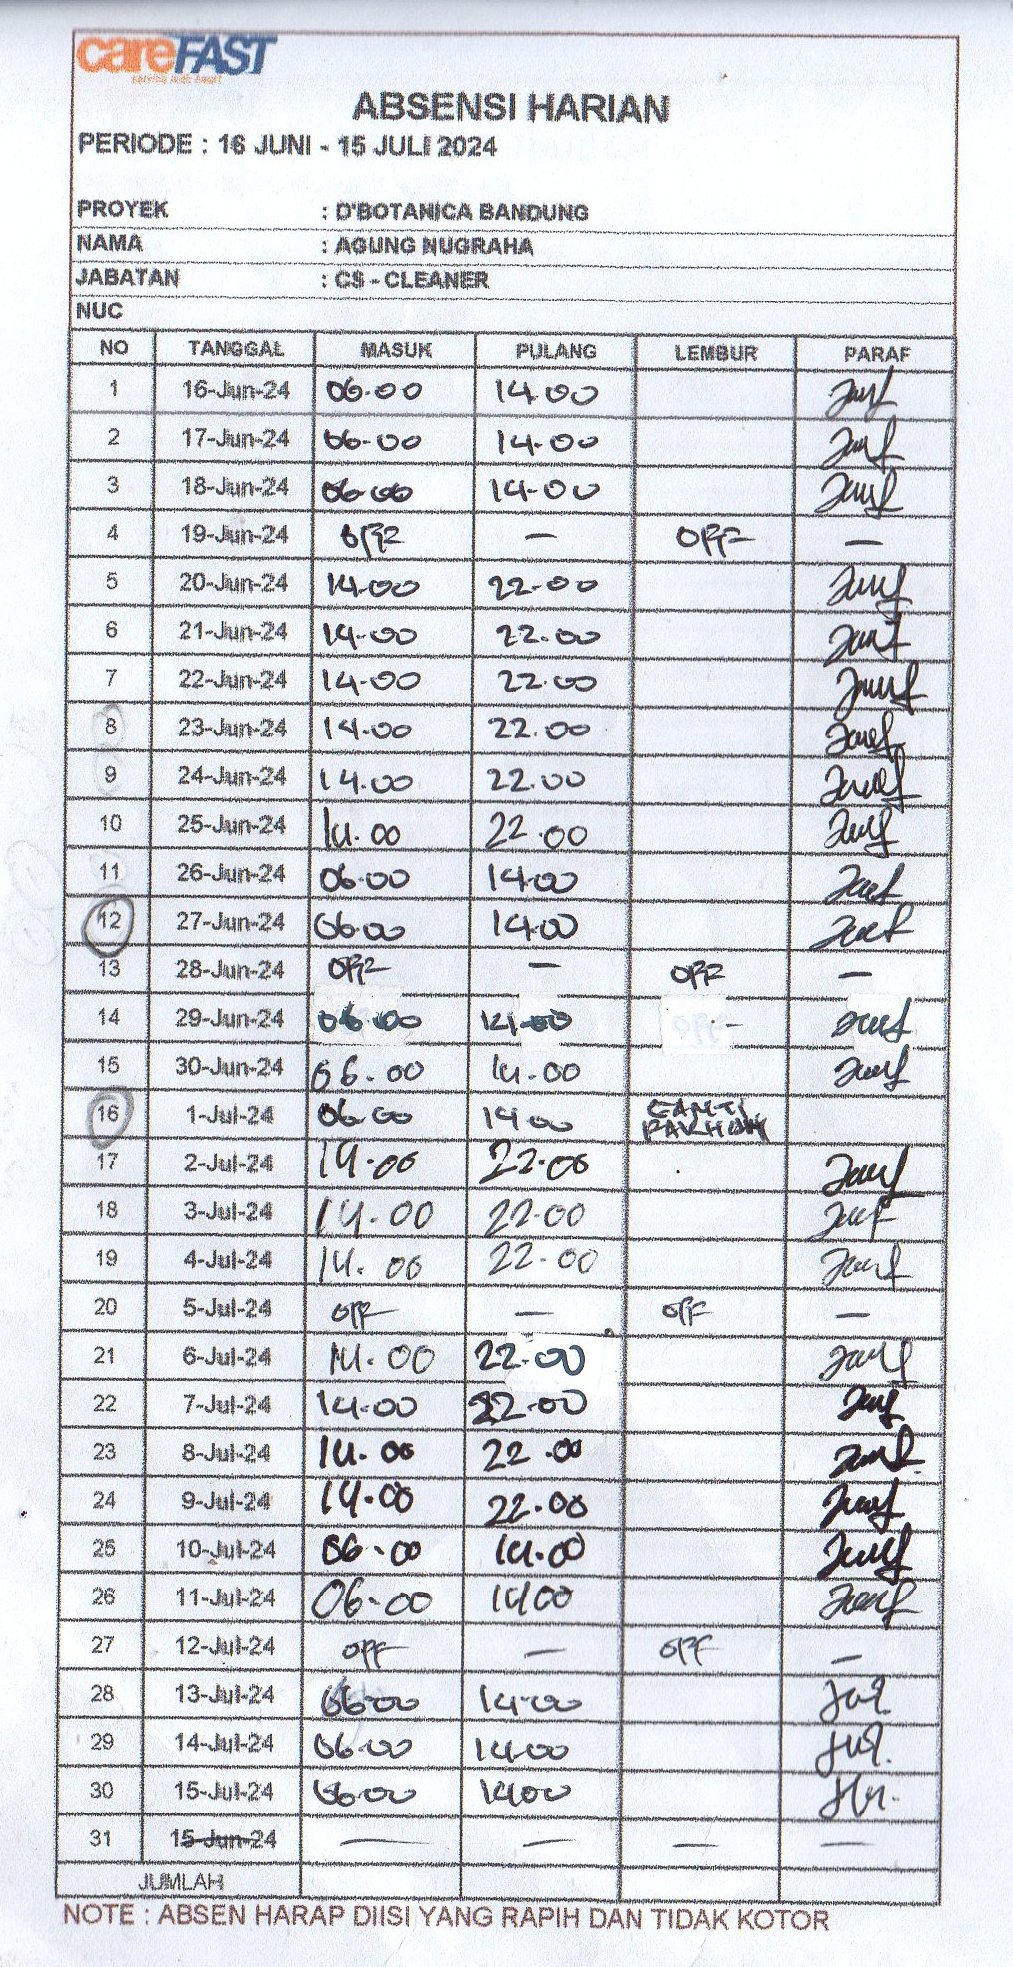 careFAST
service with heart
ABSENSI HARIAN
PERIODE : 16 JUNI - 15 JULI 2024
PROYEK : D'BOTANICA BANDUNG
NAMA : AGUNG NUGRAHA
JABATAN : CS - CLEANER
NUC
NO TANGGAL MASUK PULANG LEMBUR PARAF
1 16-Jun-24 06.00 14.00
2 17-Jun-24 06.00 14.00
3 18-Jun-24 06.00 14.00
4 19-Jun-24 OFF — OFF —
5 20-Jun-24 14.00 22.00
6 21-Jun-24 14.00 22.00
7 22-Jun-24 14.00 22.00
8 23-Jun-24 14.00 22.00
9 24-Jun-24 14.00 22.00
10 25-Jun-24 14.00 22.00
11 26-Jun-24 06.00 14.00
12 27-Jun-24 06.00 14.00
13 28-Jun-24 OFF — OFF —
14 29-Jun-24 06.00 14.00 -
15 30-Jun-24 06.00 14.00
16 1-Jul-24 06.00 14.00 GANTI
17 2-Jul-24 14.00 22.00
18 3-Jul-24 14.00 22.00
19 4-Jul-24 14.00 22.00
20 5-Jul-24 OFF — OFF —
21 6-Jul-24 14.00 22.00
22 7-Jul-24 14.00 22.00
23 8-Jul-24 14.00 22.00
24 9-Jul-24 14.00 22.00
25 10-Jul-24 06.00 14.00
26 11-Jul-24 06.00 14.00
27 12-Jul-24 OFF — OFF —
28 13-Jul-24 06.00 14.00
29 14-Jul-24 06.00 14.00
30 15-Jul-24 06.00 14.00
31 15-Jun-24 — — — —
JUMLAH
NOTE : ABSEN HARAP DIISI YANG RAPIH DAN TIDAK KOTOR